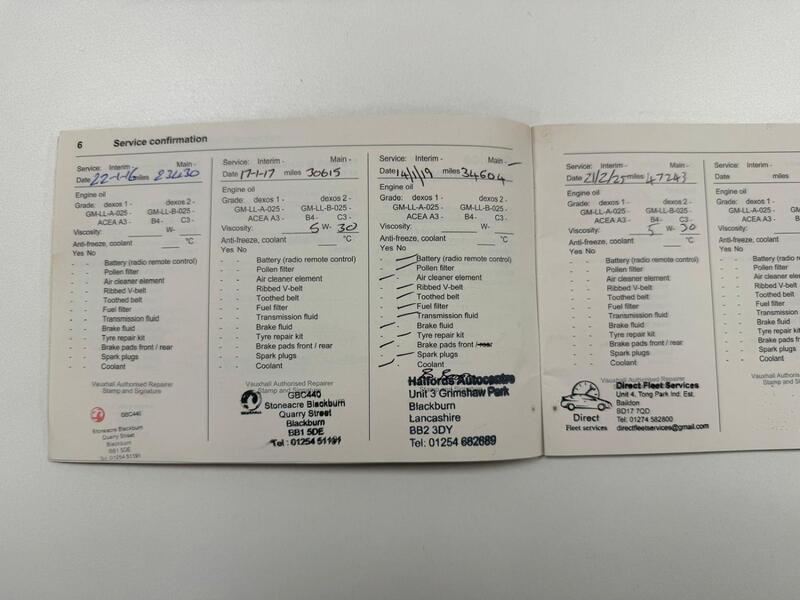 6 Service confirmation
Service: Interim - Main -
Date 22-1-16 miles 23430
Engine oil
Grade: dexos 1 - dexos 2 -
GM-LL-A-025 - GM-LL-B-025 -
ACEA A3 - B4 - C3 -
Viscosity: W-
Anti-freeze, coolant °C
Yes No
- - Battery (radio remote control)
- - Pollen filter
- - Air cleaner element
- - Ribbed V-belt
- - Toothed belt
- - Fuel filter
- - Transmission fluid
- - Brake fluid
- - Tyre repair kit
- - Brake pads front / rear
- - Spark plugs
- - Coolant
Vauxhall Authorised Repairer
Stamp and Signature
GBC440
Stoneacre Blackburn
Quarry Street
Blackburn
BB1 5DE
Tel : 01254 51191
Service: Interim - Main -
Date 17-1-17 miles 30615
Engine oil
Grade: dexos 1 - dexos 2 -
GM-LL-A-025 - GM-LL-B-025 -
ACEA A3 - B4 - C3 -
Viscosity: 5 W- 30
Anti-freeze, coolant °C
Yes No
- - Battery (radio remote control)
- - Pollen filter
- - Air cleaner element
- - Ribbed V-belt
- - Toothed belt
- - Fuel filter
- - Transmission fluid
- - Brake fluid
- - Tyre repair kit
- - Brake pads front / rear
- - Spark plugs
- - Coolant
Vauxhall Authorised Repairer
Stamp and Signature
GBC440
Stoneacre Blackburn
Quarry Street
Blackburn
BB1 5DE
Tel : 01254 51191
Service: Interim - Main -
Date 14/1/19 miles 34604
Engine oil
Grade: dexos 1 - dexos 2 -
GM-LL-A-025 - GM-LL-B-025 -
ACEA A3 - B4 - C3 -
Viscosity: W-
Anti-freeze, coolant °C
Yes No
Battery (radio remote control)
Pollen filter
Air cleaner element
Ribbed V-belt
Toothed belt
Fuel filter
Transmission fluid
Brake fluid
Tyre repair kit
Brake pads front / rear
Spark plugs
Coolant
Halfords Autocentre
Unit 3 Grimshaw Park
Blackburn
Lancashire
BB2 3DY
Tel: 01254 682689
Service: Interim - Main -
Date 21/2/25 miles 47243
Engine oil
Grade: dexos 1 - dexos 2 -
GM-LL-A-025 - GM-LL-B-025 -
ACEA A3 - B4 - C3 -
Viscosity: 5 W- 30
Anti-freeze, coolant °C
Yes No
- - Battery (radio remote control)
- - Pollen filter
- - Air cleaner element
- - Ribbed V-belt
- - Toothed belt
- - Fuel filter
- - Transmission fluid
- - Brake fluid
- - Tyre repair kit
- - Brake pads front / rear
- - Spark plugs
- - Coolant
Vauxhall Authorised Repairer
Direct Fleet Services
Unit 4, Tong Park Ind. Est.
Baildon
BD17 7QD
Tel: 01274 582800
directfleetservices@gmail.com
Direct
Fleet services
Service:
Date
Engine oil
Grade:
GM-
Viscosity:
Anti-freeze
Yes No